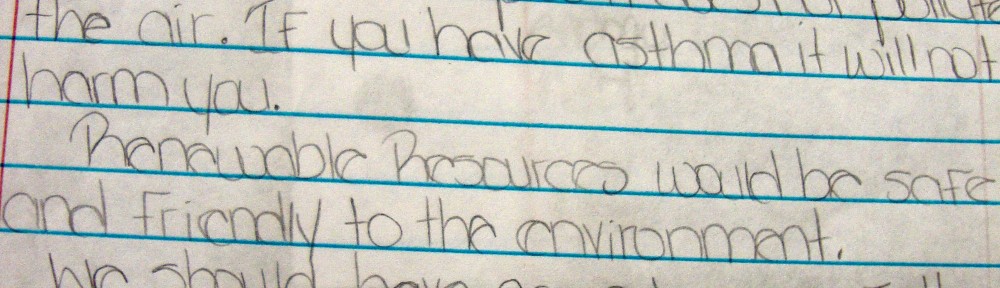 pollute
the air. If you have asthma it will not
harm you.
Renewable Resources would be safe
and friendly to the environment.
We should have